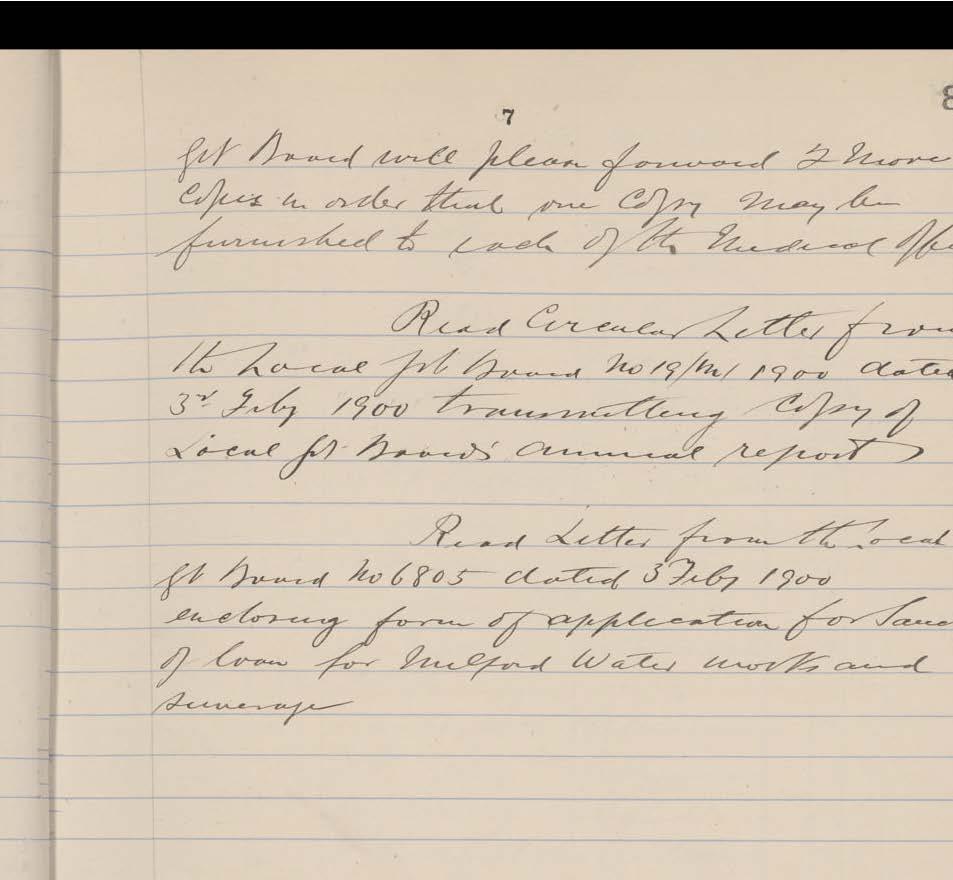 7
8
Gvt Board will please forward 2 more
Copies in order that one Copy may be
furnished to each of the Medical Offi
Read Circular Letter from
the Local Gvt Board No 19/M/1900 dated
3rd Feby 1900 transmitting Copy of
Local Gvt Board's annual report
Read Letter from the Local
Gvt Board No 6805 dated 3 Feby 1900
enclosing form of application for Sanc
of loan for Milford Water works and
sewerage